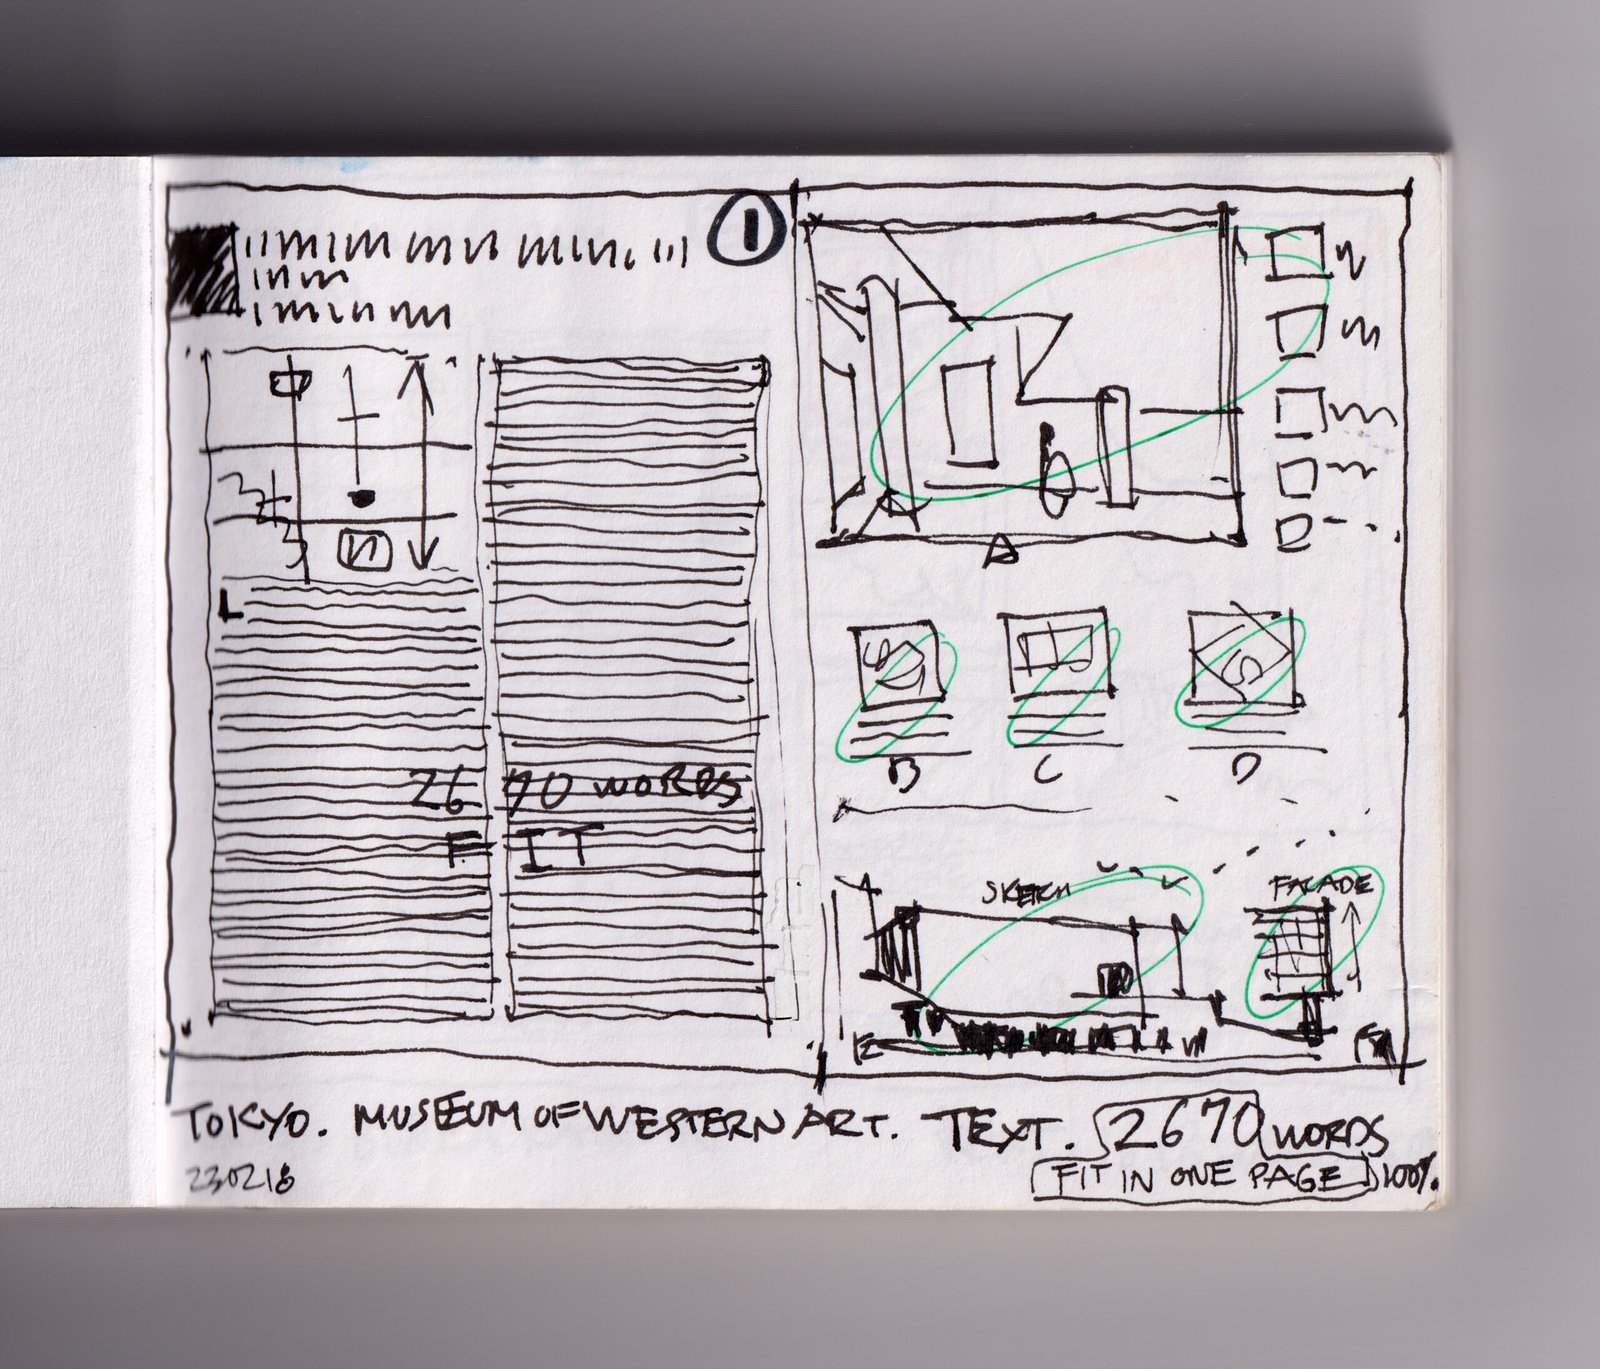 1
L
26 70 WORDS
FIT
A
B
C
D
SKETCH
FACADE
E
TOKYO. MUSEUM OF WESTERN ART. TEXT. 2670 WORDS
230218
FIT IN ONE PAGE 100%.